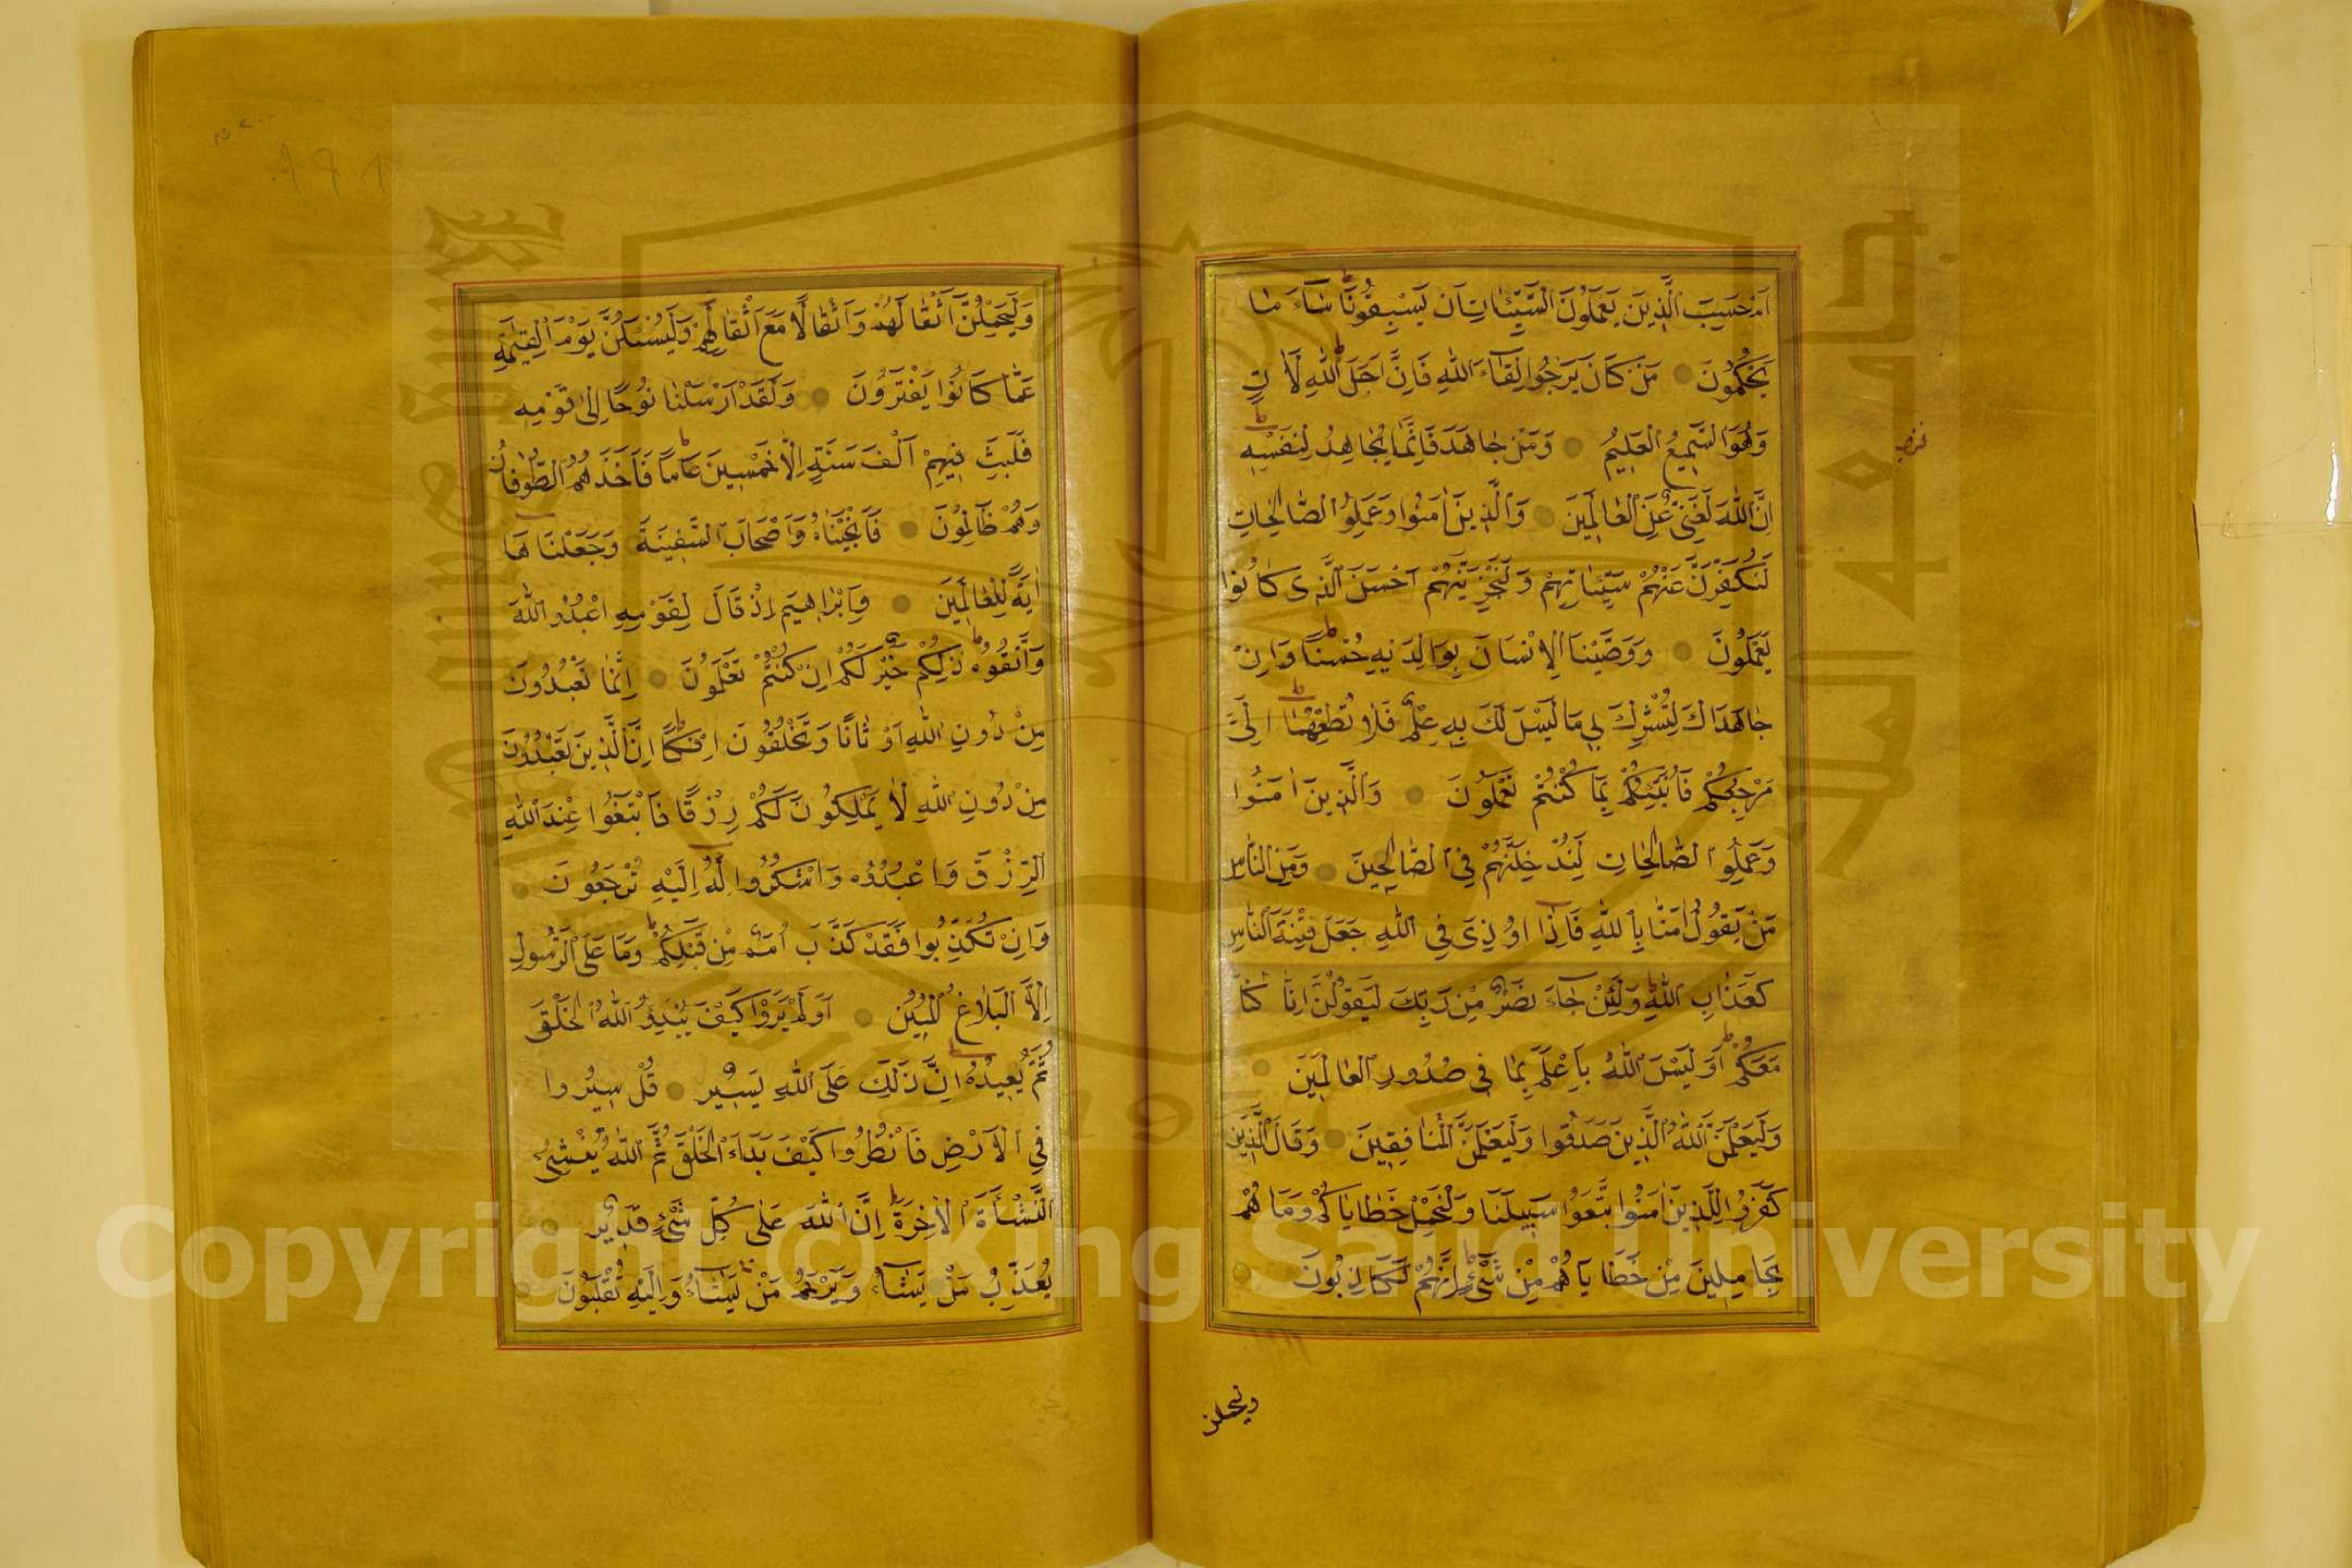 اَمْ حَسِبَ الَّذِينَ يَعْمَلُونَ السَّيِّئَاتِ اَنْ يَسْبِقُونَا سَاءَ مَا
يَحْكُمُونَ مَنْ كَانَ يَرْجُوا لِقَاءَ اللّٰهِ فَاِنَّ اَجَلَ اللّٰهِ لَاٰتٍ
وَهُوَ السَّمِيعُ الْعَلِيمُ وَمَنْ جَاهَدَ فَاِنَّمَا يُجَاهِدُ لِنَفْسِهِ
اِنَّ اللّٰهَ لَغَنِيٌّ عَنِ الْعَالَمِينَ وَالَّذِينَ اٰمَنُوا وَعَمِلُوا الصَّالِحَاتِ
لَنُكَفِّرَنَّ عَنْهُمْ سَيِّئَاتِهِمْ وَلَنَجْزِيَنَّهُمْ اَحْسَنَ الَّذِى كَانُوا
يَعْمَلُونَ وَوَصَّيْنَا الْاِنْسَانَ بِوَالِدَيْهِ حُسْنًا وَاِنْ
جَاهَدَاكَ لِتُشْرِكَ بِى مَا لَيْسَ لَكَ بِهِ عِلْمٌ فَلَا تُطِعْهُمَا اِلَىَّ
مَرْجِعُكُمْ فَاُنَبِّئُكُمْ بِمَا كُنْتُمْ تَعْمَلُونَ وَالَّذِينَ اٰمَنُوا
وَعَمِلُوا الصَّالِحَاتِ لَنُدْخِلَنَّهُمْ فِى الصَّالِحِينَ وَمِنَ النَّاسِ
مَنْ يَقُولُ اٰمَنَّا بِاللّٰهِ فَاِذَا اُوذِىَ فِى اللّٰهِ جَعَلَ فِتْنَةَ النَّاسِ
كَعَذَابِ اللّٰهِ وَلَئِنْ جَاءَ نَصْرٌ مِنْ رَبِّكَ لَيَقُولُنَّ اِنَّا كُنَّا
مَعَكُمْ اَوَلَيْسَ اللّٰهُ بِاَعْلَمَ بِمَا فِى صُدُورِ الْعَالَمِينَ
وَلَيَعْلَمَنَّ اللّٰهُ الَّذِينَ صَدَقُوا وَلَيَعْلَمَنَّ الْمُنَافِقِينَ وَقَالَ الَّذِينَ
كَفَرُوا لِلَّذِينَ اٰمَنُوا اتَّبِعُوا سَبِيلَنَا وَلْنَحْمِلْ خَطَايَاكُمْ وَمَا هُمْ
بِحَامِلِينَ مِنْ خَطَايَاهُمْ مِنْ شَىْءٍ اِنَّهُمْ لَكَاذِبُونَ
وليحملن
وَلَيَحْمِلُنَّ اَثْقَالَهُمْ وَاَثْقَالًا مَعَ اَثْقَالِهِمْ وَلَيُسْئَلُنَّ يَوْمَ الْقِيٰمَةِ
عَمَّا كَانُوا يَفْتَرُونَ وَلَقَدْ اَرْسَلْنَا نُوحًا اِلٰى قَوْمِهِ
فَلَبِثَ فِيهِمْ اَلْفَ سَنَةٍ اِلَّا خَمْسِينَ عَامًا فَاَخَذَهُمُ الطُّوفَانُ
وَهُمْ ظَالِمُونَ فَاَنْجَيْنَاهُ وَاَصْحَابَ السَّفِينَةِ وَجَعَلْنَاهَا
اٰيَةً لِلْعَالَمِينَ وَاِبْرَاهِيمَ اِذْ قَالَ لِقَوْمِهِ اعْبُدُوا اللّٰهَ
وَاتَّقُوهُ ذٰلِكُمْ خَيْرٌ لَكُمْ اِنْ كُنْتُمْ تَعْلَمُونَ اِنَّمَا تَعْبُدُونَ
مِنْ دُونِ اللّٰهِ اَوْثَانًا وَتَخْلُقُونَ اِفْكًا اِنَّ الَّذِينَ تَعْبُدُونَ
مِنْ دُونِ اللّٰهِ لَا يَمْلِكُونَ لَكُمْ رِزْقًا فَابْتَغُوا عِنْدَ اللّٰهِ
الرِّزْقَ وَاعْبُدُوهُ وَاشْكُرُوا لَهُ اِلَيْهِ تُرْجَعُونَ
وَاِنْ تُكَذِّبُوا فَقَدْ كَذَّبَ اُمَمٌ مِنْ قَبْلِكُمْ وَمَا عَلَى الرَّسُولِ
اِلَّا الْبَلَاغُ الْمُبِينُ اَوَلَمْ يَرَوْا كَيْفَ يُبْدِئُ اللّٰهُ الْخَلْقَ
ثُمَّ يُعِيدُهُ اِنَّ ذٰلِكَ عَلَى اللّٰهِ يَسِيرٌ قُلْ سِيرُوا
فِى الْاَرْضِ فَانْظُرُوا كَيْفَ بَدَاَ الْخَلْقَ ثُمَّ اللّٰهُ يُنْشِئُ
النَّشْاَةَ الْاٰخِرَةَ اِنَّ اللّٰهَ عَلٰى كُلِّ شَىْءٍ قَدِيرٌ
يُعَذِّبُ مَنْ يَشَاءُ وَيَرْحَمُ مَنْ يَشَاءُ وَاِلَيْهِ تُقْلَبُونَ
Copyright © King Saud University